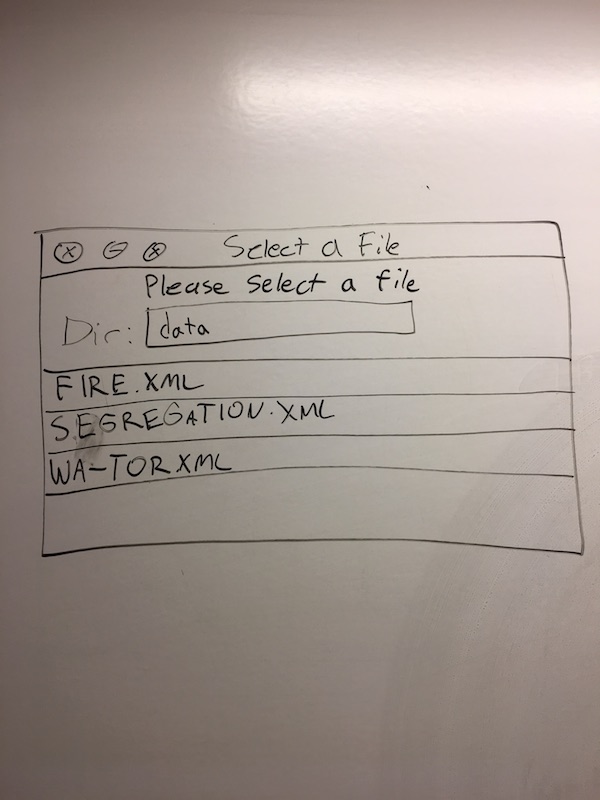 Select a File
Please Select a file
Dir: data
FIRE.XML
SEGREGATION.XML
WA-TOR XML